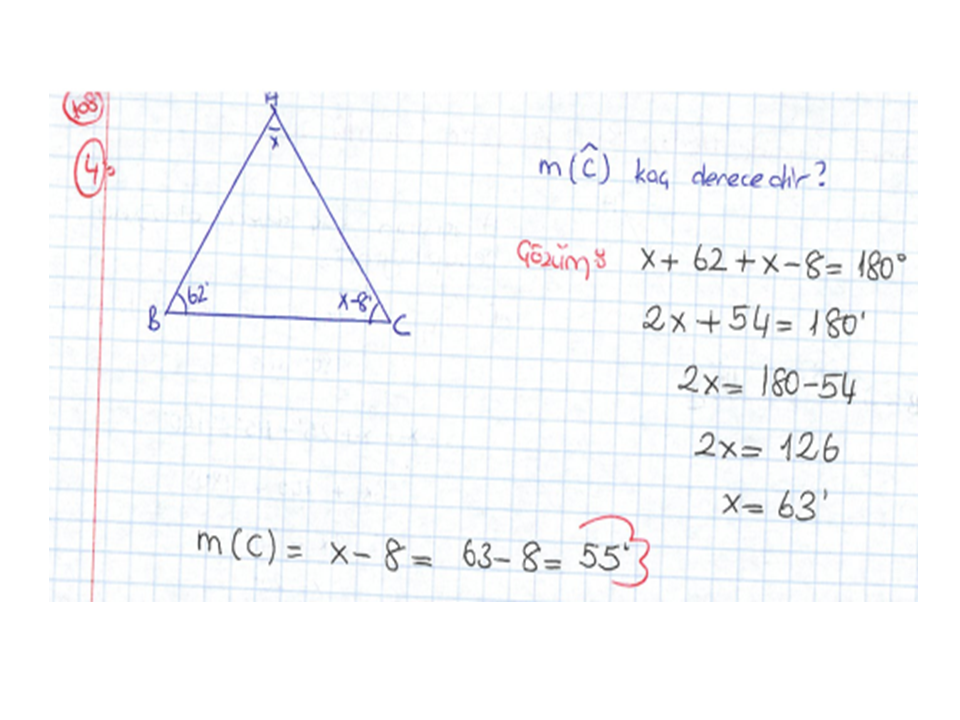 108
4)
A
x
m(Ĉ) kaç derecedir?
Çözüm: x + 62 + x - 8 = 180°
62°
x-8°
B
C
2x + 54 = 180°
2x = 180 - 54
2x = 126
x = 63°
m(C) = x - 8 = 63 - 8 = 55°